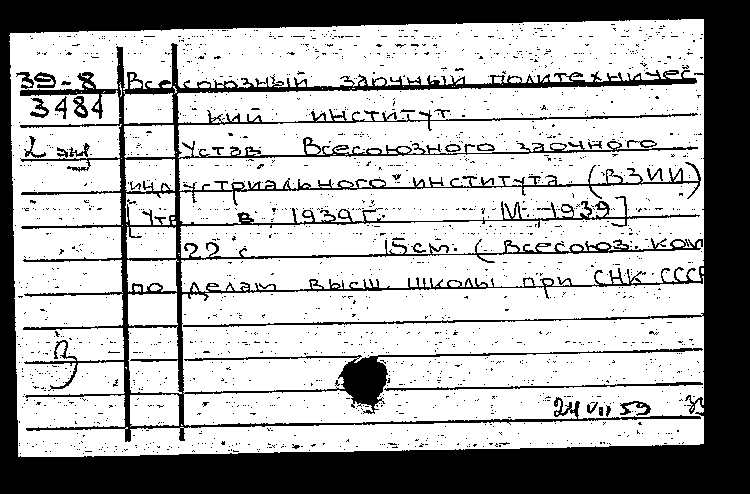 39-8 Всесоюзный заочный политехничес-
3484 кий институт.
2 экз Устав Всесоюзного заочного
индустриального института (ВЗИИ)
[Утв. в 1939 г. М. 1939]
22 с. 15 см. (Всесоюз. ком
по делам высш. школы при СНК СССР
З
24 VII 59